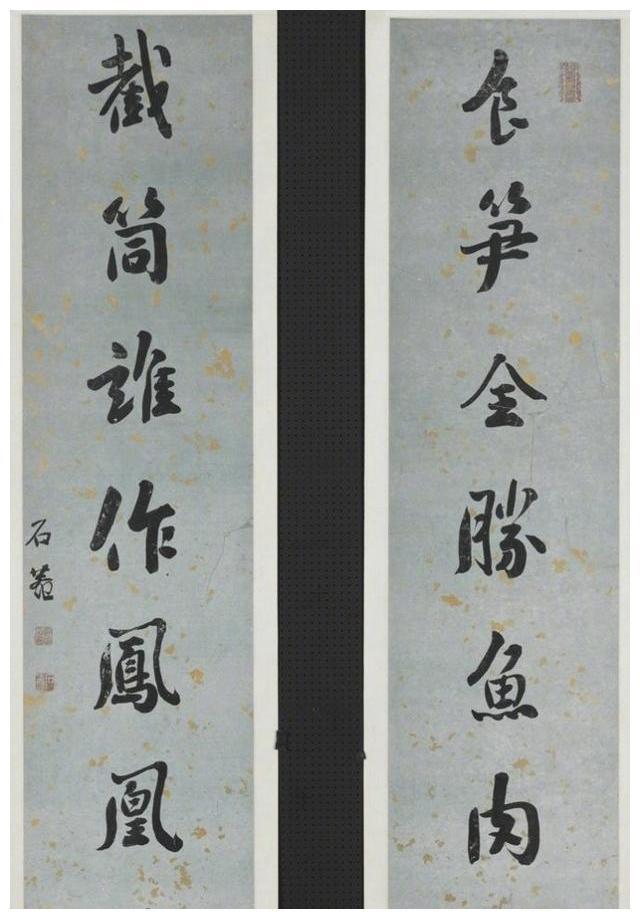 食笋全勝魚肉
截筒誰作鳳凰
石菴